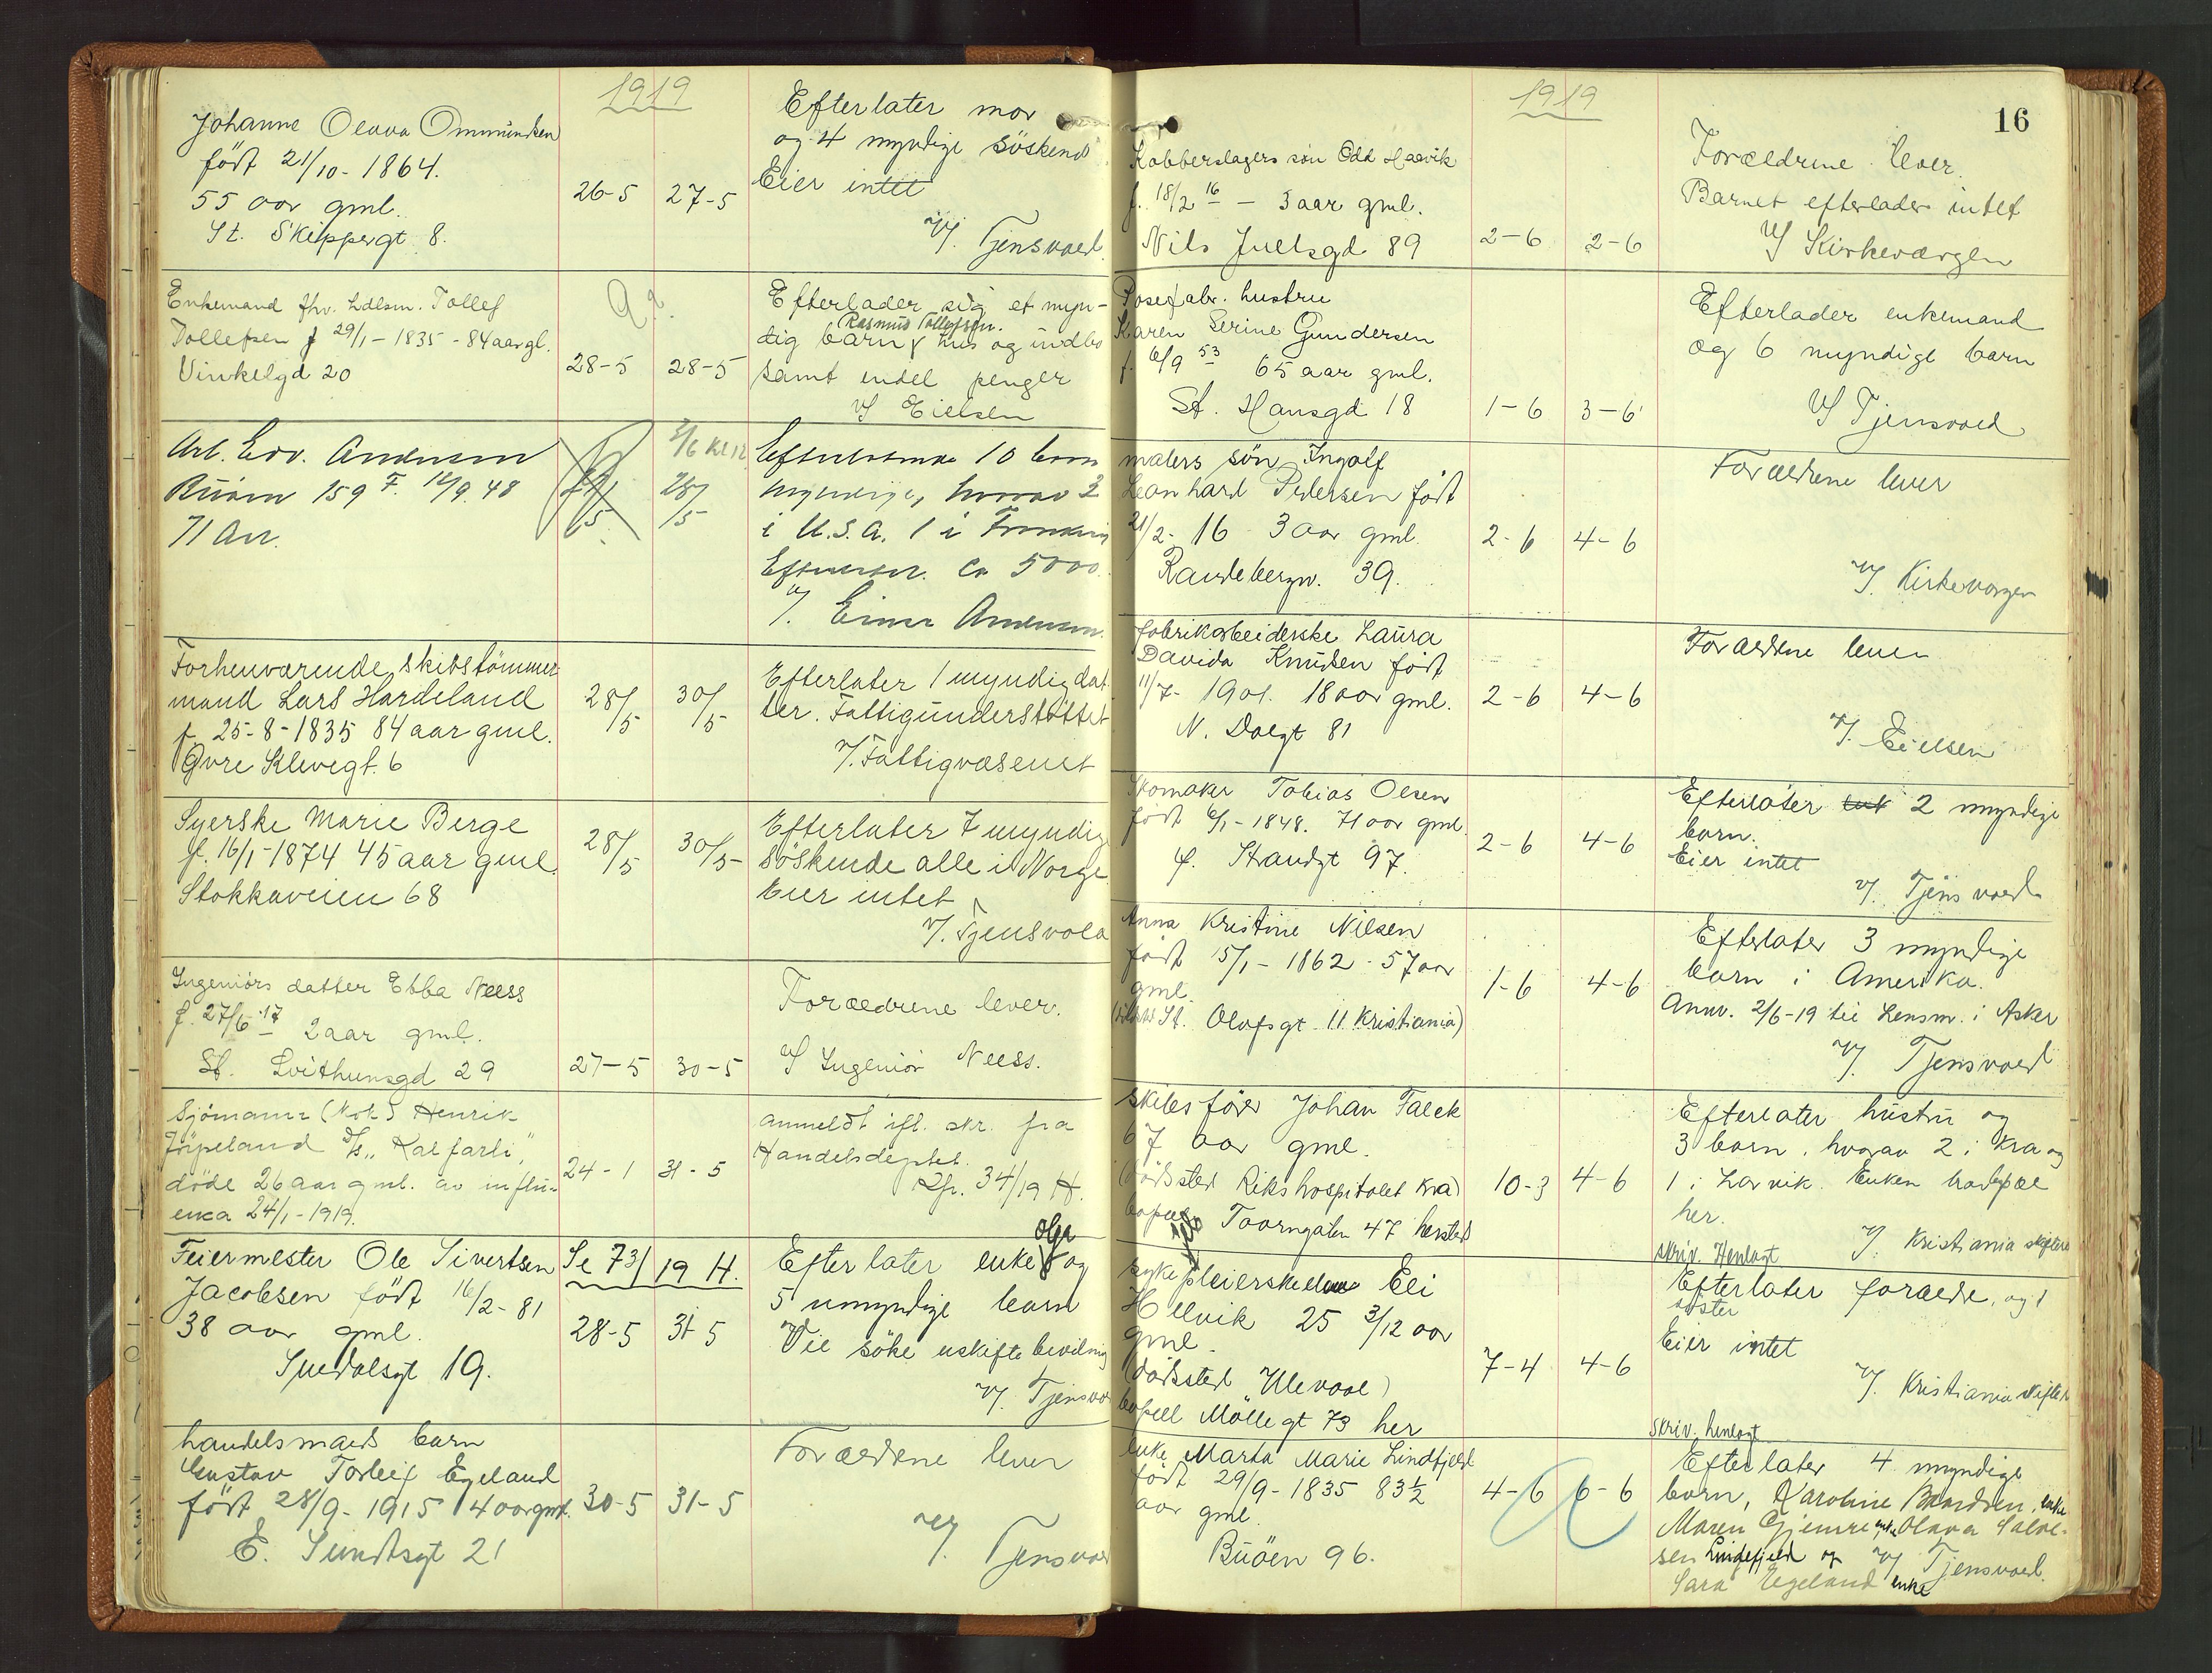 1919
Johanne Olava Ommundsen
født 21/10 - 1864.
55 aar gml.
St. Skippergt 8.
26-5 27-5
Efterlater mor
og 4 myndige söskend
Eier intet
V/. Tjensvold
Enkemand fhv. Tollef
Tollefsen f 29/1 - 1835 - 84 aar gl.
Vinkelgd 20
28-5 28-5
Efterlader sig et myn-
Rasmus Tollefsen.
dig barn hus og indbo
samt endel penger
V/ Eielsen
Arb. Edv. Andersen
Buöen 159 F. 12/9. 48
71 Aar.
2/6 Kl 12
28/5
Efterlatende 10 barn
myndige, hvorav 2
i U.S.A. 1 i
ca 5000.
V/. Einar Andersen.
Forhenværende skibstömmer-
mand Lars Hardeland
f. 25-8-1835 84 aar gml.
Øvre Klevegt. 6
28/5 30/5
Efterlater 1 myndig dat-
ter. Fattigunderstöttet
V/. Fattigvæsenet
Syerske Marie Berge
f. 16/1 - 1874 45 aar gml.
Stokkaveien 68
28/5 30/5
Efterlater 7 myndig
söskende alle i Norge.
Eier intet
V/. Tjensvold
Ingeniørs datter Ebba Neess
f. 27/6 17 2 aar gml.
St. Svithunsgd 29
27-5 30-5
Forældrene lever.
V/ Ingeniør Neess.
Sjömann (Kok) Henrik
Jörpeland D/S "Kalfarli",
döde 26 aar gml. av influ-
enca 24/1 - 1919.
24-1 31-5
anmeldt ifl. skr. fra
Handelsdeptet.
Kfr. 34/19 H.
Feiermester Ole Sivertsen
Jacobsen født 16/2 - 81
38 aar gml.
Suedalsgt 19.
Se 73/19 H.
28-5 31-5
Olga
Efterlater enke og
5 umyndige barn
Vil söke uskiftebevilning
V/. Tjensvo
handelsmands barn
Gustav Torleif Egeland
født 28/9 - 1915 4 aar gml.
E. Sundtsgt 21
30-5 31-5
Forældrene lever
V/. Tjensvold
16
1919
Kobberslagers søn Odd Haavik
f. 18/2 16 - 3 aar gml.
Nils Juelsgd 89
2-6 2-6
Forældrene lever.
Barnet efterlader intet
V/ Kirkeværgen
Posefabr. hustru
Karen Serine Gundersen
f. 6/9 53 65 aar gml.
St. Hansgd 18
1-6 3-6
Efterlader enkemand
og 6 myndige barn
V/ Tjensvold
malers søn Ingolf
Leonhard Pedersen født
21/2 - 16 3 aar gml.
Randebergv. 39.
2-6 4-6
Forældrene lever
V/. Kirkevergen
fabrikarbeiderske Laura
Davida Knudsen født
11/7 - 1901. 18 aar gml.
N. Dalgt 81
2-6 4-6
Forældrene lever
V/. Eielsen
Skomaker Tobias Olsen
født 6/1 - 1848. 71 aar gml.
Strandgt 97.
2-6 4-6
Efterlater 2 myndige
barn.
Eier intet
V/. Tjensvold
Anna Kristine Nilsen
født 15/1 - 1862 - 57 aar
gml.
St. Olafsgt 11 Kristiania)
1-6 4-6
Efterlater 3 myndige
barn i Amerika.
Anm. 2/6-19 til Lensm. i Asker
V/. Tjensvold
Skibsfører Johan Falck
67 aar gml.
(dødssted Rikshospitalet Kra)
bopæl Taarngaten 47 hersteds
10-3 4-6
Efterlater hustru og
3 barn, hvorav 2 i Kra og
1 i Larvik. Enken bor
her.
V/. Kristiania skifteret
skriv. Henlagt
sykepleierske Eli
Hellvik 25 3/12 aar
gml.
(dødssted Ulevaal)
bopæl Möllegt 73 her
7-4 4-6
Efterlater forældre, og 1
søster
Eier intet
V/. Kristiania skifter
skriv. henlagt
enke Marta Marie Lindtjeld
født 29/9 - 1835 83 1/2
aar gml.
Buöen 96.
4-6 6-6
Efterlater 4 myndige
barn, Karoline enke
Maren Gjemre enke Olava Salve-
sen Lindefjeld og V/ Tjensvold.
Sara Egeland enke